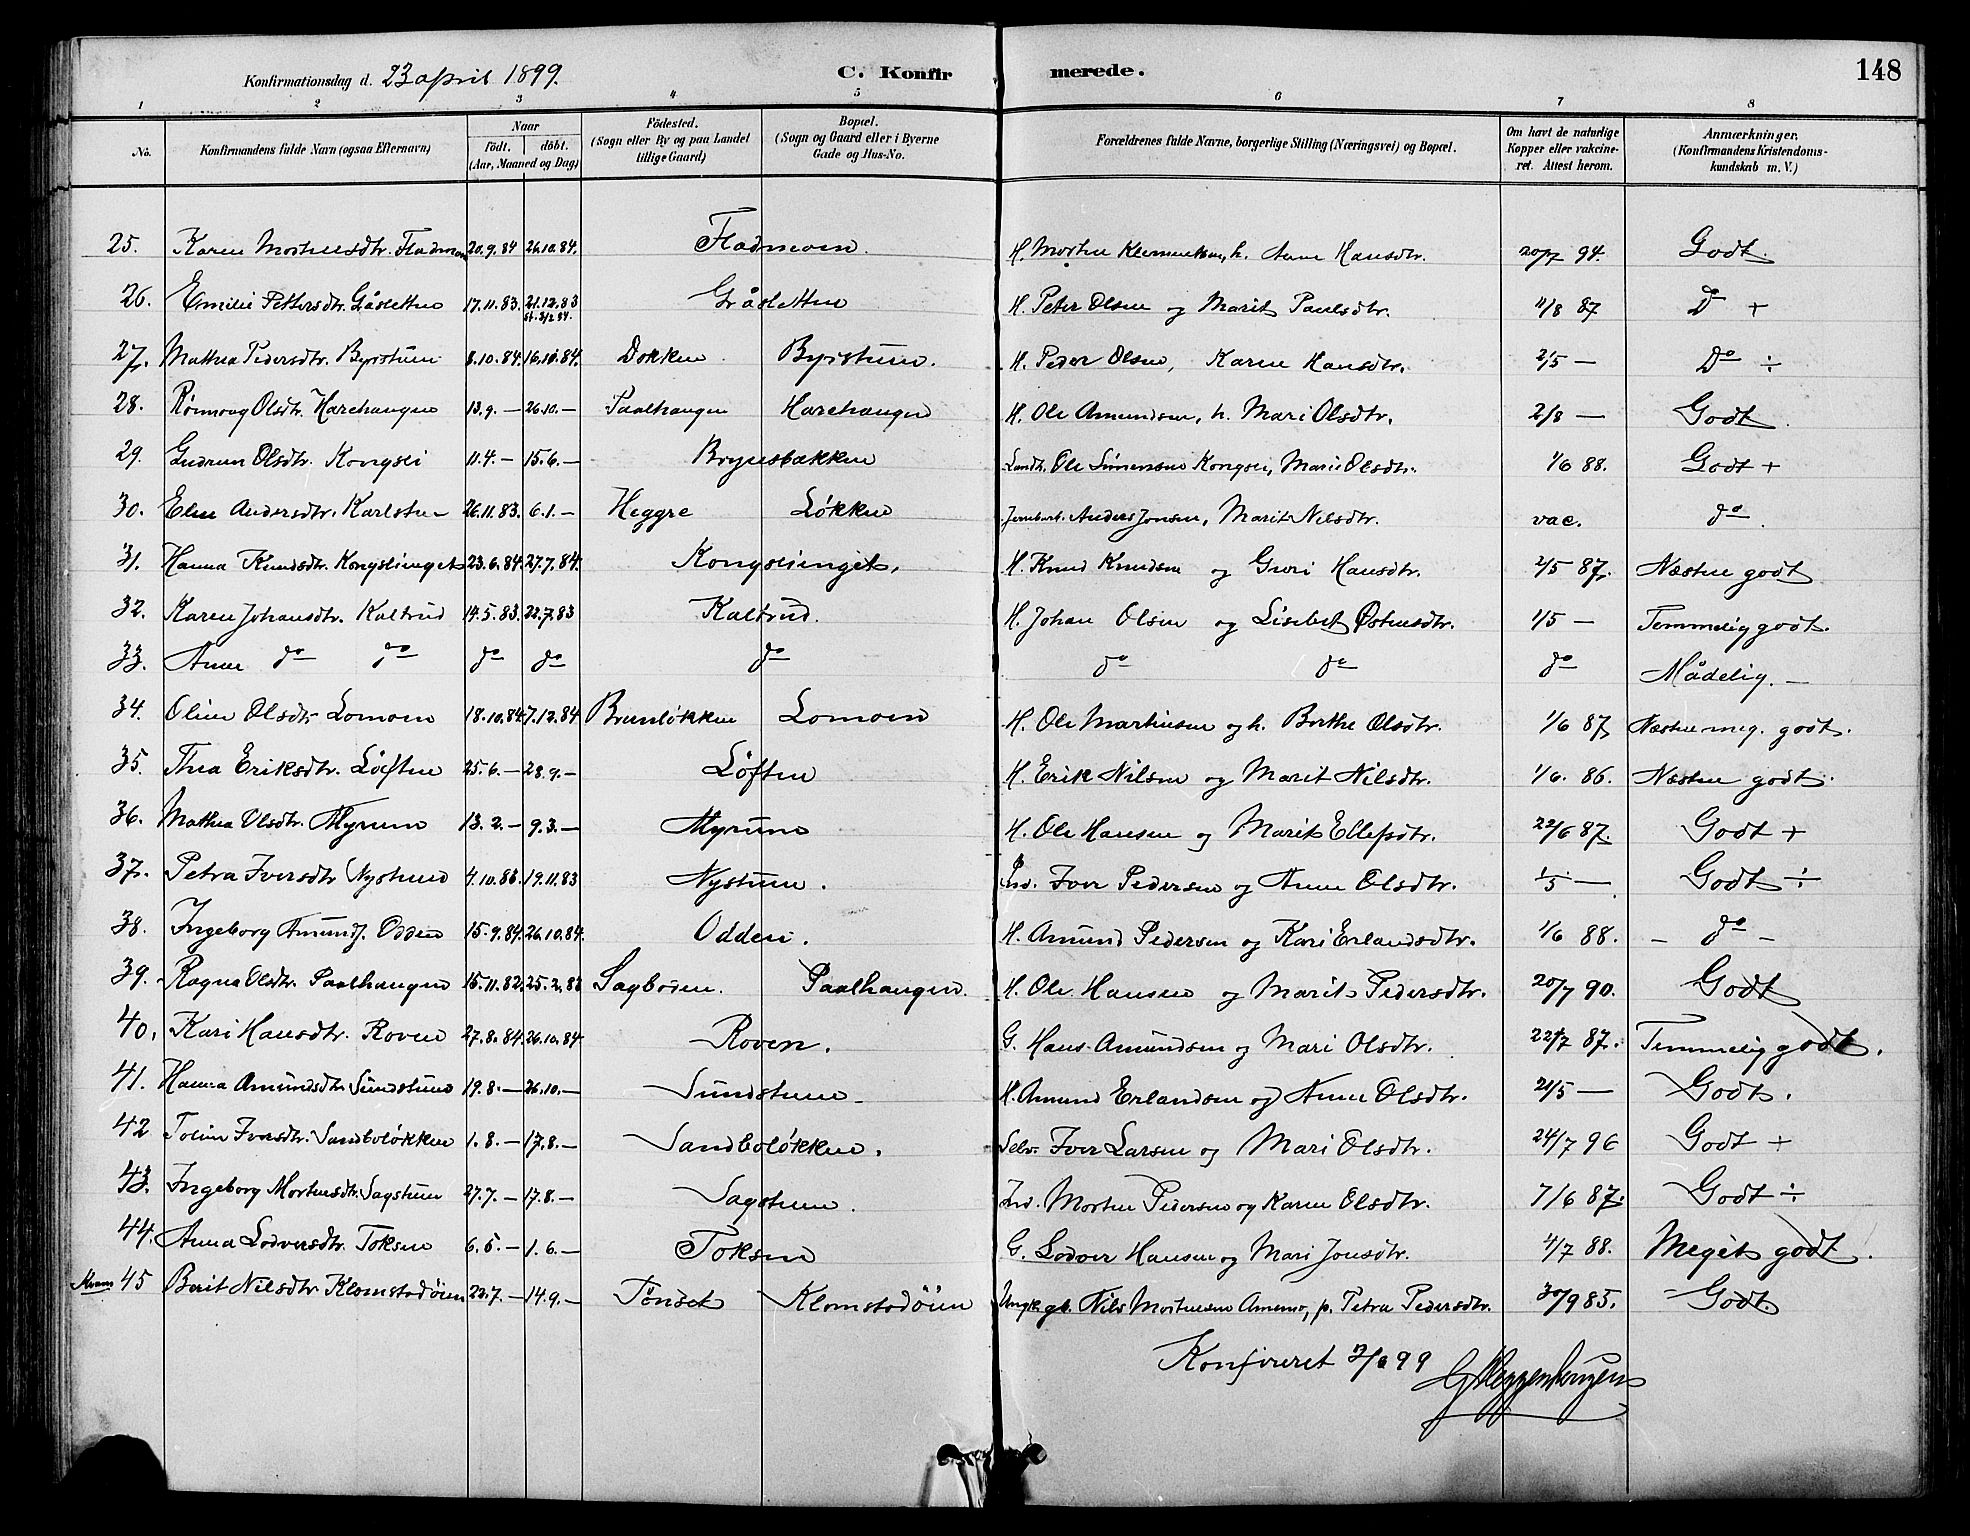 Konfirmationsdag d. 23 april 1899. C. Konfirmerede. 148
1 2 3 4 5 6 7 8
No. Konfirmandens fulde Navn (ogsaa Efternavn) Naar födt. döbt. (Aar, Maaned og Dag) Födested. (Sogn eller By og paa Landet tillige Gaard) Bopæl. (Sogn og Gaard eller i Byerne Gade og Hus-No. Forældrenes fulde Navne, borgerlige Stilling (Næringsvei) og Bopæl. Om havt de naturlige Kopper eller vakcineret. Attest herom. Anmærkninger. (Konfirmandens Kristendomskundskab m. V.)
25. Karen Mortensdtr. Fladmoen 20.9.84 26.10.84. Fladmoen. H. Morten Klemmetsen, h. Anne Hansdtr. 20/7 94. Godt.
26. Emilie Pettersdtr. Gåsletten 17.11.83. 21.12.83 st. 3/2 84. Gråsletten H. Peter Olsen og Marit Paulsdtr. 4/8 87 Do +
27. Mathea Pedersdtr. Byrstuen 8.10.84 16.10.84. Dokken Byrstuen. H. Peder Olsen, Karen Hansdtr. 2/5 — Do ÷
28. Rønnoug Olsdtr. Harehaugen 13.9. — 26.10. — Paalhaugen Harehaugen H. Ole Amundsen, h. Mari Olsdtr. 2/8 — Godt.
29. Gudrun Olsdtr. Kongsli 11.4. — 15.6. — Brynsbakken Landh. Ole Simensen Kongsli, Mari Olsdtr. 1/6 88. Godt +
30. Eline Andersdtr. Karlsten 26.11.83. 6.1. — Heggre Løkken Jernbarb. Anders Jonsen, Marit Nilsdtr. vac. do.
31. Hanna Knudsdtr. Kongslinget 23.6.84. 27.7.84. Kongslienget. H. Knud Knudsen og Guri Hansdtr. 2/5 87. Næsten godt
32. Karen Johansdtr. Kaltrud 14.5.83. 22.7.83 Kaltrud. H. Johan Olsen og Lisebet Østensdtr. 1/5 — Temmelig godt.
33. Anne do do do do do do do do Mådelig. —
34. Oline Olsdtr Lomoen 18.10.84 7.12.84 Brunløkken Lomoen H. Ole Martinsen og h. Berthe Olsdtr. 1/6 87 Næsten meg. godt.
35. Thea Eriksdtr. Løften 25.6. — 28.9. — Løften H. Erik Nilsen og Marit Nilsdtr. 1/6. 86. Næsten godt.
36. Mathea Olsdtr. Myrum 13.2. — 9.3. — Myrum H. Ole Hansen og Marit Ellefsdtr. 22/6 87. Godt +
37. Petra Iversdtr Nystuen 4.10.83. 19.11.83 Nystuen. Ind. Iver Pedersen og Anne Olsdtr. 1/5 — Godt ÷
38. Ingeborg Amundsd. Odden 15.9.84. 26.10.84. Odden. H. Amund Pedersen og Kari Erlandsdtr. 1/6 88. — do —
39. Ragna Olsdtr. Paalhaugen 15.11.82. 25.2.83 Sagboden. Paalhaugen. H. Ole Hansen og Marit Pedersdtr. 20/7 90. Godt
40. Kari Hansdtr. Roven 27.8.84. 26.10.84. Roven. G. Hans Amundsen og Mari Olsdtr. 22/7 87. Temmelig godt.
41. Hanna Amundsdtr. Sundstuen 19.8. — 26.10. — Sundstuen H. Amund Erlandsen og Anne Olsdtr. 21/5 — Godt.
42 Toline Iversdtr. Sandboløkken 1.8. — 17.8. — Sandboløkken. Selv. Iver Larsen og Mari Olsdtr. 24/7 96 Godt +
43. Ingeborg Mortensdtr. Sagstuen 27.7. — 17.8. — Sagstuen. Ind. Morten Pedersen og Karen Olsdtr. 7/6 87. Godt ÷
44. Anna Lodversdtr. Toksen 6.5. — 1.6. — Toksen G. Lodver Hansen og Mari Jonsdtr. 4/7 88. Meget godt.
Kvam 45 Berit Nilsdtr Klomstadöien 22.7. — 14.9. — Tönset Klomstadöien Ungk. gb. Nils Mortensen Amemo, p. Petra Pedersdtr. 30/9 85. Godt.
Konfireret 99